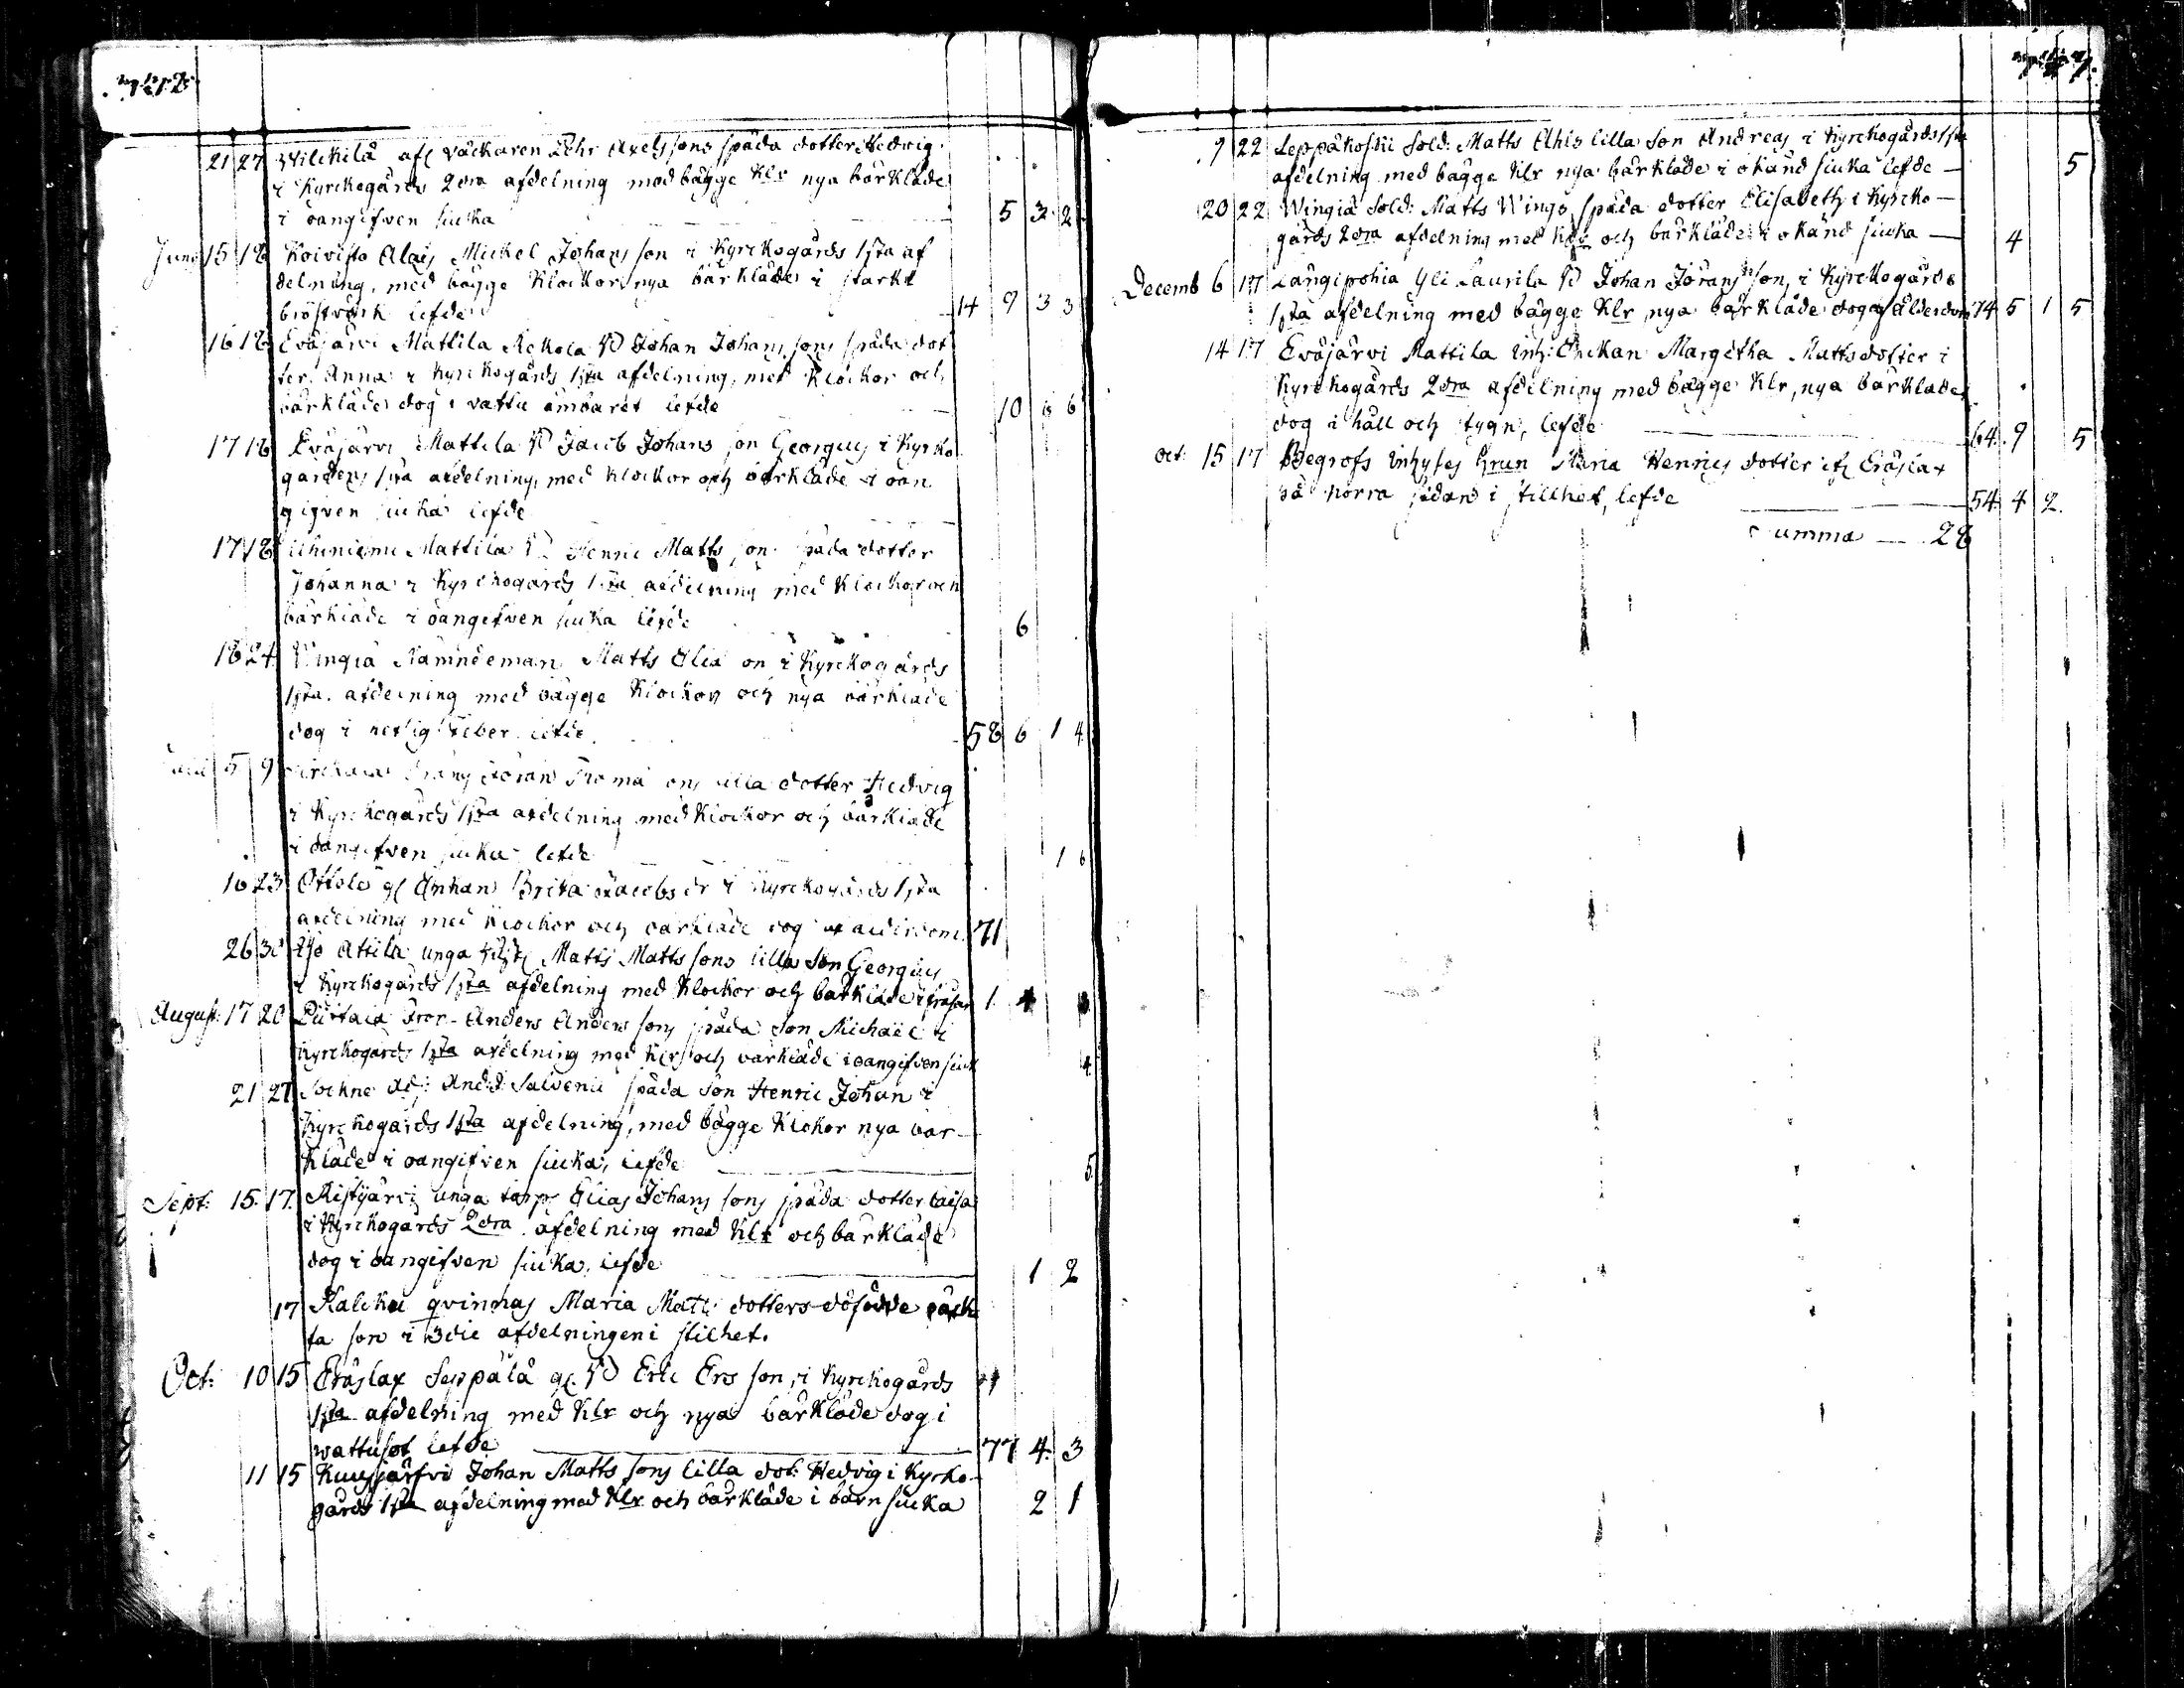 21 27 Wilckilä afl väckaren Lehr Axelssons späda dotter Hedvig
i Kyrckogårds 2dra afdelning med bägge Klr nya bårkläde
i oangifven siuka 5 3 2
Juni 15 18 Koivisto Alais Mickel Johansson i Kyrckogårds 1sta af
delning, med bägge Klockor nya bårkläde i starkt
bröstvärk lefde 14 9 3 3
16 18 Eväjärvi Mattila Johan Johanssons späda dot
ter Anna i Kyrckogårds 1sta afdelning, med Klockor och
bårkläde dog i vattu ämbaret lefde 10 6
17 18 Eväjärvi Mattila Jacob Johans son Georgius i Kyrko
gårdens 1sta afdelning, med Klockor och bårkläde i oan
gifven siuka lefde
17 18 Mattila Henric Matts son späda dotter
Johanna i Kyrckogårds 1sta afdelning med Klockor och
bårkläde i oangifven siuka lefde 6
18 24 Wingiä Nämndeman Matts Elia son i Kyrckogårds
1sta afdelning med bägge Klockor och nya bårkläde
dog i hetsig feber lefde 58 6 1 4
5 9 Thomasons lilla dotter Hedvig
i Kyrckogårds 1sta afdelning med Klockor och bårkläde
i oangifven siuka lefde 1 6
16 23 Ottola gl Änkan Brita Jacobs dr i Kyrckogårds 1sta
afdelning med Klockor och bårkläde dog af ålderdom 71
26 30 Attila unga Matts Matts sons lilla son Georgius
i Kyrckogårds 1sta afdelning med Klockor och bårkläde 1 4
August: 17 20 Anders Anders sons späda son Michaël i
Kyrckogårds 1sta afdelning med Klr och bårkläde i oangifven siuk 4
21 27 Sockne Adj: And: Salvenii späda son Henric Johan i
Kyrckogårds 1sta afdelning, med bägge Klokor nya bår-
kläde i oangifven siuka, lefde 5
Sept: 15. 17. Ristjärvi unga torp: Elias Johans sons späda dotter Caisa
i Kyrckogårds 2dra afdelning med Klr och bårkläde
dog i oangifven siuka, lefde 1 2
17 Kalcku qvinnas Maria Matts dotters dödfödde oäck
ta son i 3die afdelningen i stilhet.
Oct: 10 15 Eräslax Seppälä gl Eric Ers son, i Kyrckogårds
1sta afdelning med Klr och nya bårkläde dog i
wattusot lefde 77 4 3
11 15 Kuusjärfvi Johan Matts sons lilla dot: Hedvig i Kyrko-
gårds 1sta afdelning med Klr och bårkläde i barn siuka 2 1
9 22 Leppäkoski Sold: Matts Ahls lilla son Andreas i Kyrckogårds 1sta
afdelning med bägge Klr nya bårkläde i okänd siuka lefde 5
20 22 Wingiä Sold: Matts Wings späda dotter Elisabeth i Kyrcko-
gårds 2dra afdelning med Klr och bårkläde i okänd siuka 4
Decemb 6 17 Långipohia Yli Laurila Johan Jörans son, i Kyrckogårds
1sta afdelning med bägge Klr nya bårkläde dog af ålderdom 74 5 1 5
14 17 Eväjärvi Mattila Inh: Enckan Margetha Mattsdotter i
Kyrckogårds 2dra afdelning med bägge Klr, nya bårkläde
dog i håll och stygn, lefde 64 9 5
oct: 15 17 Begrofs Inhyses Maria Henrics dotter Eräslax
på norra sidan i stillhet, lefde 54 4 2.
Summa 28